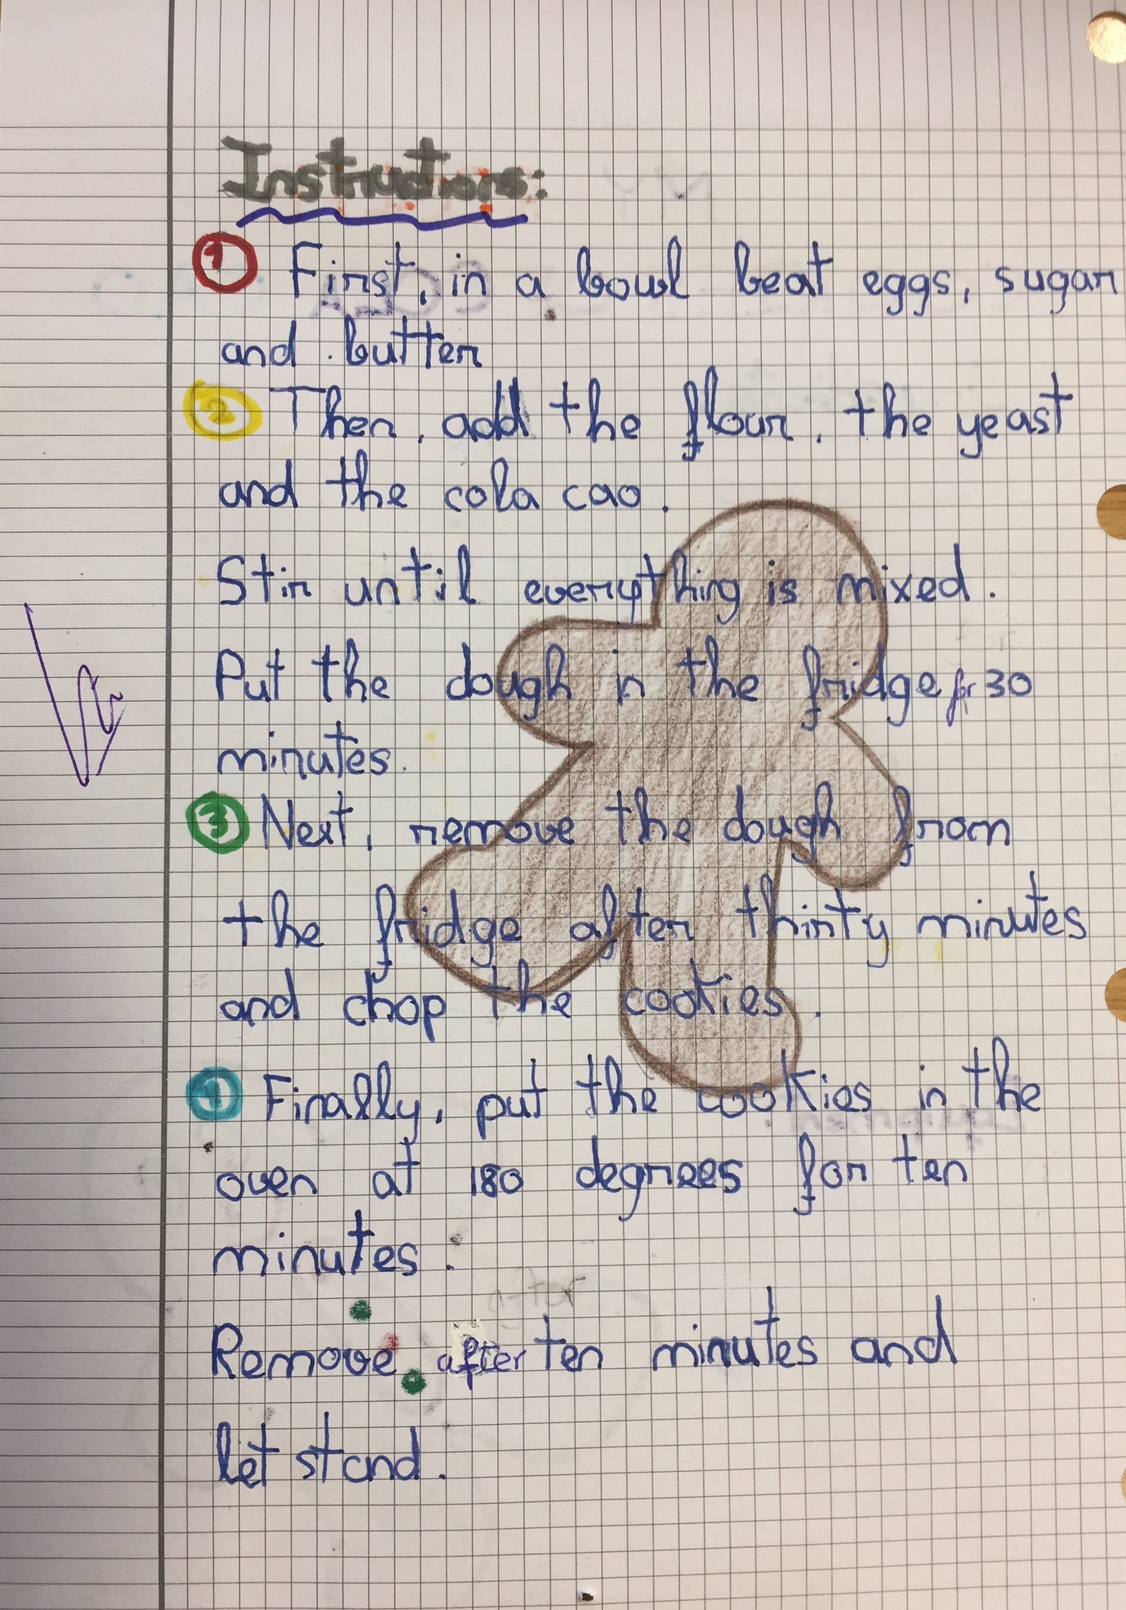 Instructions:
1 First, in a bowl beat eggs, sugar
and butter
2 Then, add the flour, the yeast
and the cola cao.
Stir until everything is mixed.
Put the dough in the fridge for 30
minutes.
3 Next, remove the dough from
the fridge after thirty minutes
and chop the cookies.
4 Finally, put the cookies in the
oven at 180 degrees for ten
minutes.
Remove after ten minutes and
let stand.